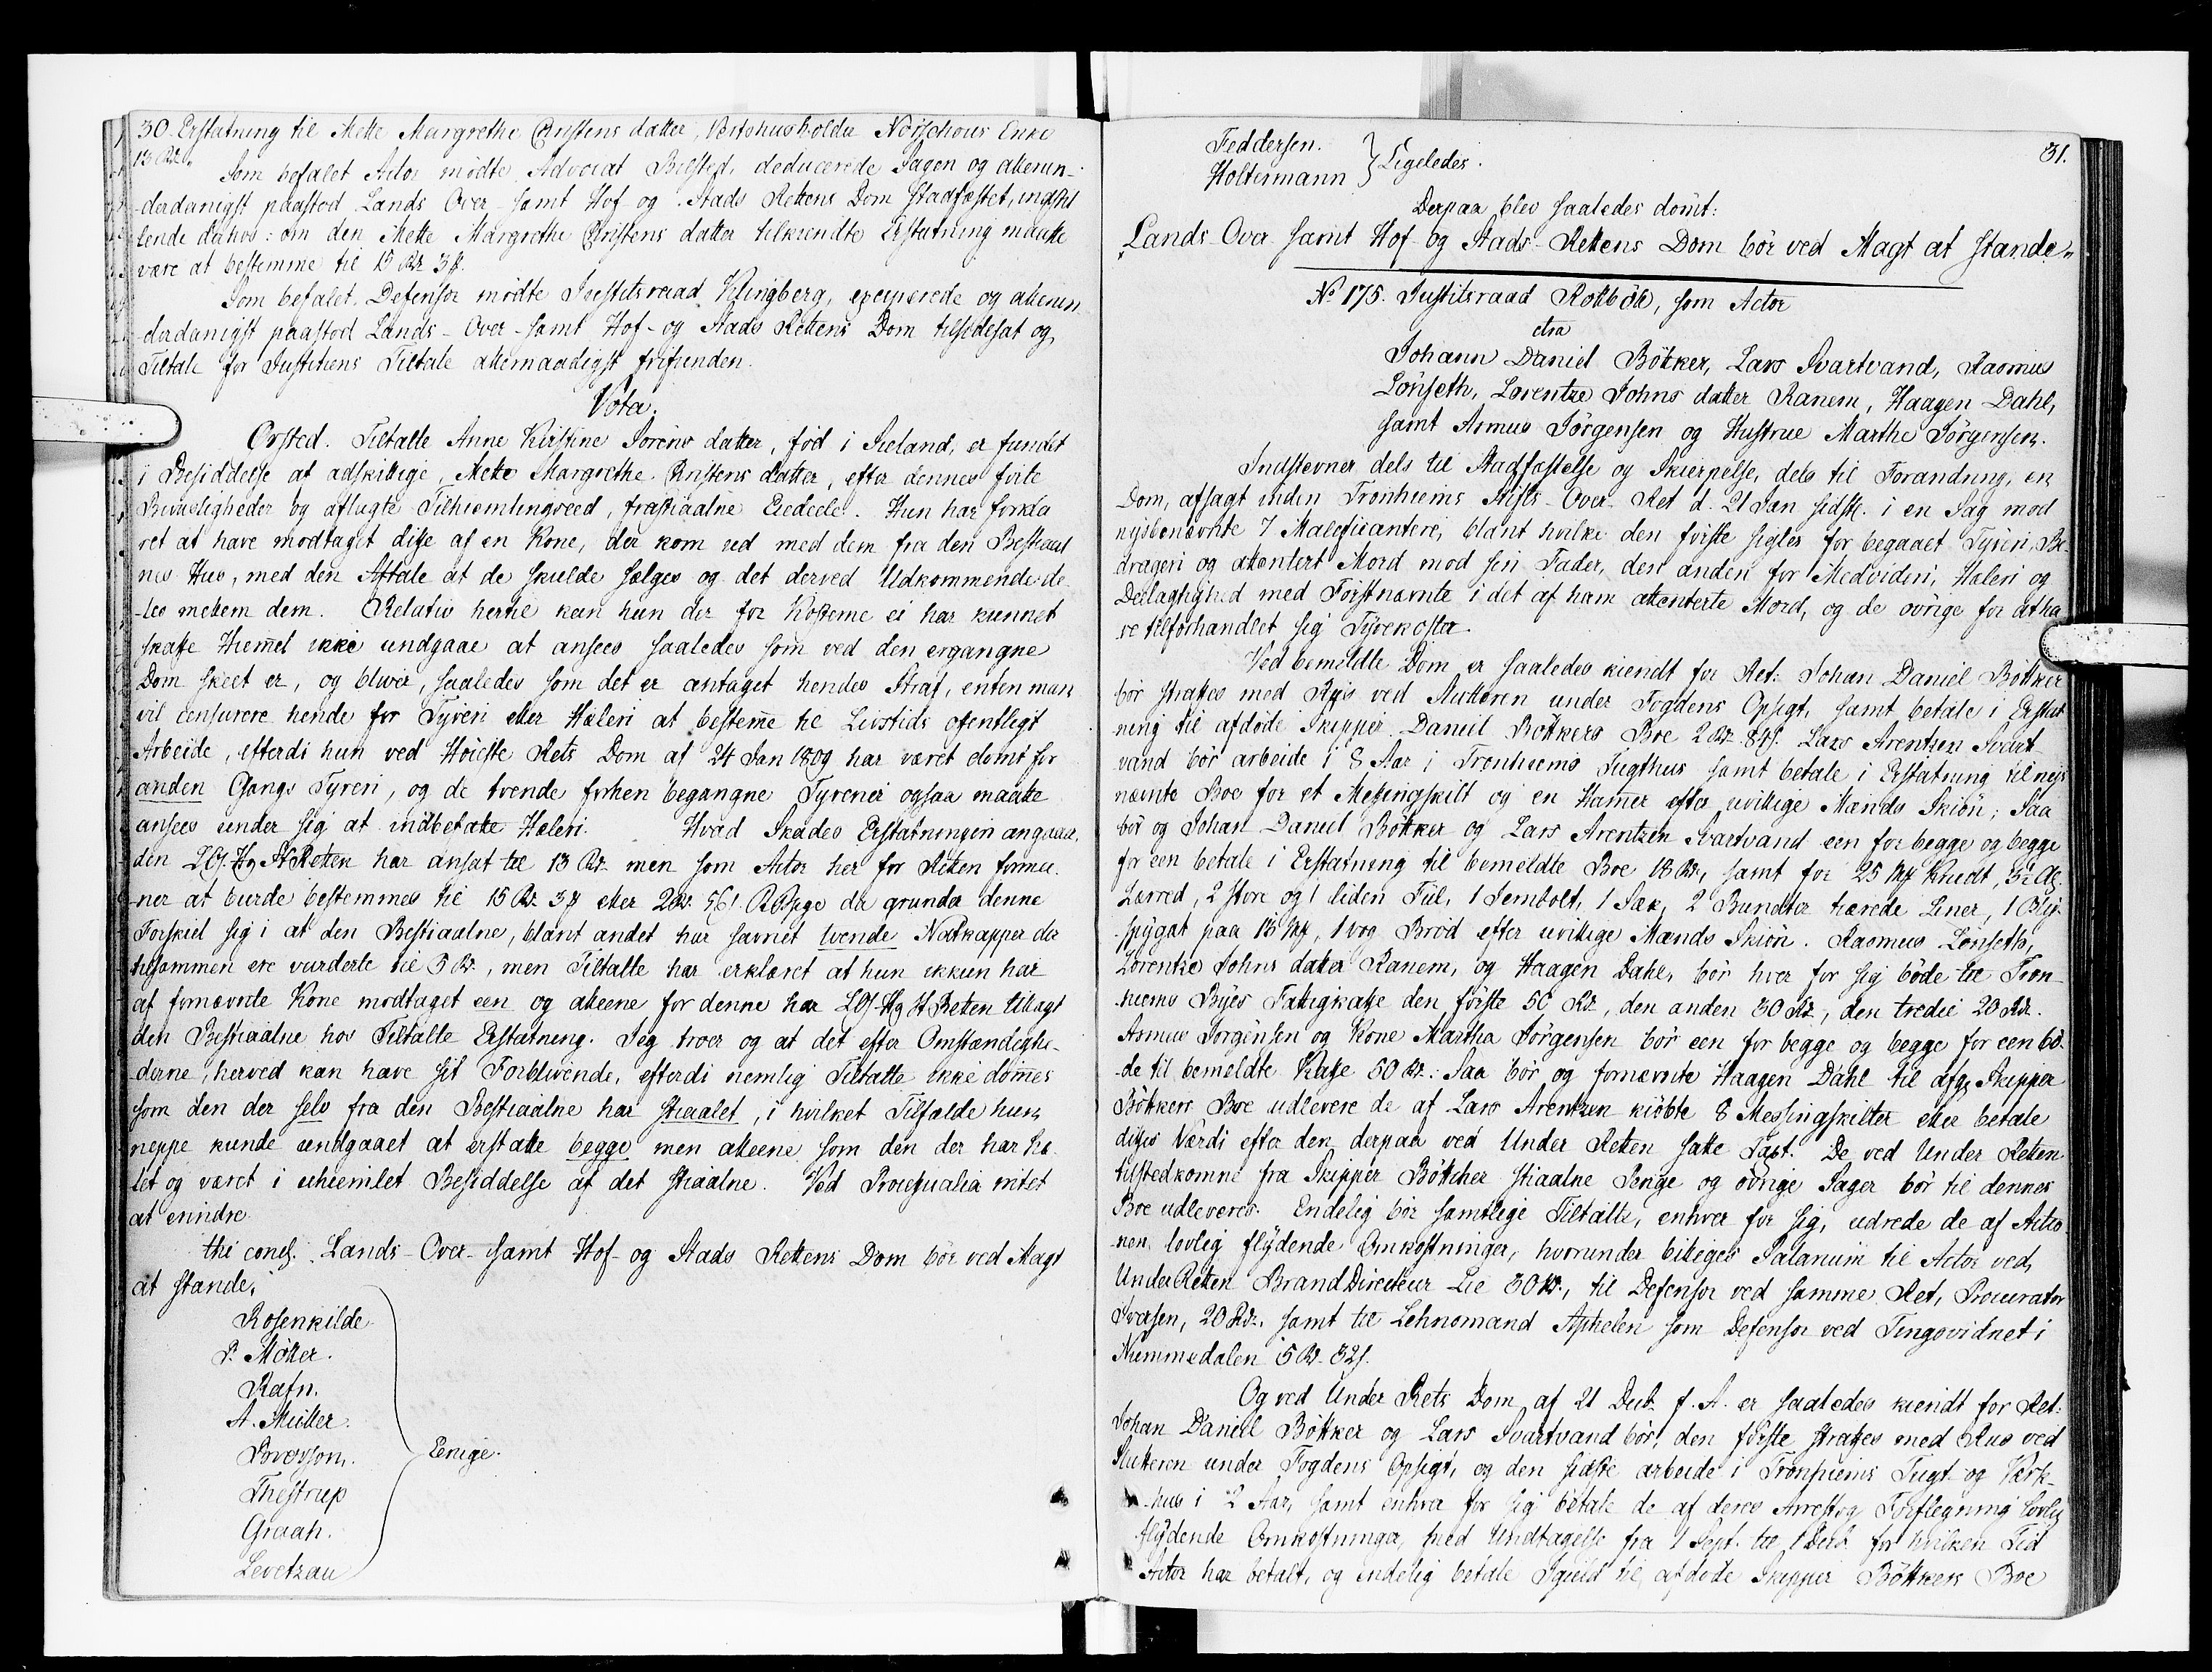 30. Erstatning til Mette Margrethe Christens datter, Bertshusholder Nörschous Enke
13 Rd.
Som befalet Actor mödte Advocat Bilsted, deducerede Sagen og allerun-
derdanigst paastod Lands Over- samt Hof og Stads Rettens Dom stadfæstet, indstil
lende dahos: om den Mette Margrethe Christens datter tilkiendte Erstatning maatte
være at bestemme til 15 Rd. 3 ß.
Som befalet Defensor mödte Justitsraad Klingberg, exciperede og allerun
derdanigst paastod Lands- Over- samt Hof- og Stads Rettens Dom tilsidesat og
Tiltalte for Justitiens Tiltale allernaadigst frifunden.
Vota.
Örsted. Tiltalte Anne Kirstine Sörens datter, föd i Sieland, er fundet
i Besiddelse af adskillige, Mette Margrethe Christens Datter, efter dennes förte
Beviisligheder og aflagte Tilhiemlingseed, frastiaalne Eiedeele. Hun har forkla
ret at have modtaget disse af en Kone, der kom ud med dem fra den Bestiaal
nes Huus, med den Aftale at de skulde sælges og det derved Udkommende de
les mellem dem. Relativ hertil kan hun der for Kosterne ei har kunnet
skaffe Hiemmel ikke undgaae at ansees saaledes som ved den ergangne
Dom skeet er, og bliver, saaledes som det er antaget hendes Straf, enten man
vil censurere hende for Tyveri eller Hæleri at bestemme til Livstids offentligt
Arbeide, efterdi hun ved Höieste Rets Dom af 24 Jan 1809 har været dömt for
anden Gangs Tyveri, og de tvende forhen begangne Tyverier ogsaa maatte
ansees under sig at indbefatte Hæleri. Hvad Skades Erstatningen angaaer,
den LOf Hg St Retten har ansat til 13 Rd. men som Actor her for Retten formee-
ner at burde bestemmes til 15 Rd. 3 ß eller 2 Rd. 56 ß. R. Penge da grunder denne
Forskiel sig i at den Bestiaalne, blant andet har savnet tvende Natkapper der
tilsammen ere vurderte til 5 Rd., men Tiltalte har erklæret at hun ikkun har
af fornævnte Kone modtaget een og alleene for denne har LOf Hg St Retten tillagt
den Bestiaalne hos Tiltalte Erstatning. Jeg troer og at det efter Omstændighe-
derne, herved kan have sit Forblivende, efterdi nemlig Tiltalte ikke dömmes
som den der selv fra den Bestiaalne har stiaalet, i hvilket Tilfælde hun
neppe kunde undgaaet at erstatte begge men alleene som den der har hæ-
let og været i uhiemlet Besiddelse af det stiaalne. Ved Processualia intet
at erindre.
thi concl. Lands- Over- samt Hof- og Stads Rettens Dom bör ved Magt
at stande.
Rosenkilde.
P. Möller.
Rafn.
A. Müller.
Brorson.
Thestrup
Graah.
Levetzau
Eenige.
31.
Feddersen.
Holtermann
Ligeledes.
Derpaa blev saaledes dömt:
Lands- Over- samt Hof- og Stads- Rettens Dom bör ved Magt at stande.
No 175. Justitsraad Rottböll, som Actor
ctra
Johann Daniel Böttker, Lars Svartvand, Rasmus
Lönseth, Lorentze Johns datter Ranem, Haagen Dahl,
samt Asmus Jörgensen og Hustrue Marthe Jörgensen.
Indstevner dels til Stadfæstelse og Skierpelse, dels til Forandring, en
Dom, afsagt inden Tronhiems Stifts- Over- Ret d. 21 Jan sidstl. i en Sag mod
nysbenævnte 7 Maleficantere, blant hvilke den förste sigtes for begaaet Tyveri, Be-
drageri og attentert Mord mod sin Fader, den anden for Medvideri, Hæleri og
Deelagtighed med Förstnævnte i det af ham attenterte Mord, og de övrige for at ha
ve tilforhandlet sig Tyvekoster.
Ved bemeldte Dom er saaledes kiendt for Ret: Johan Daniel Böttker
bör straffes med Riis ved Slutteren under Fogdens Opsigt, samt betale i Erstat
ning til afdöde Skipper Daniel Böttkers Boe 2 Rd. 84 ß. Lars Arentzen Svart
vand bör arbeide i 8 Aar i Tronhiems Tugthus samt betale i Erstatning til nys
nævnte Boe for et Messingskilt og en Hammer efter uvillige Mænds Skiön; Saa
bör og Johan Daniel Böttker og Lars Arentzen Svartvand een for begge og begge
for een betale i Erstatning til bemeldte Boe 18 Rd., samt for 25 Mk Krudt, 5½ Al.
Lærred, 2 store og 1 liden Fiil, 1 Jernbolt, 1 Sæk, 2 Bundter tiærede Liner, 1 Bly-
spygat paa 13 Mk, 1 vog Bröd efter uvillige Mænds Skiön. Rasmus Lönseth,
Lorentze Johns datter Ranem, og Haagen Dahl, bör hver for sig böde til Tron-
hiems Byes Fattigkasse den förste 50 Rd., den anden 30 Rd., den tredie 20 Rd.
Asmus Jörgensen og Kone Martha Jörgensen bör een for begge og begge for een bö-
de til bemeldte Kasse 50 Rd.: Saa bör og fornævnte Haagen Dahl til afg. Skipper
Böttkers Boe udlevere de af Lars Arentzen kiöbte 8 Messingskilter eller betale
disses Værdi efter den derpaa ved Under Retten satte Taxt. De ved Under Retten
tilstedkomne fra Skipper Böttcher stiaalne Penge og övrige Sager bör til dennes
Boe udleveres. Endelig bör samtlige Tiltalte, enhver for sig, udrede de af Actio
nen lovlig flydende Omkostninger, hvorunder billiges Salarium til Actor ved
Under Retten Brand Directeur Lie 30 Rd., til Defensor ved samme Ret, Procurator
Iversen, 20 Rd. samt til Lehnsmand Aphelen som Defensor ved Tingsvidnet i
Nummedalen 5 Rd. 32 ß.
Og ved Under Rets Dom af 21 Decb. f. A. er saaledes kiendt for Ret:
Johan Daniel Böttker og Lars Svartvand bör, den förste straffes med Riis ved
Slutteren under Fogdens Opsigt, og den sidste arbeide i Tronhiems Tugt- og Værk-
hus i 2 Aar, samt enhver for sig betale de af deres Arrest og Forflegning lovlig
flydende Omkostninger, med Undtagelse fra 1 Sept. til 1 Decb. for hvilken Tid
Actor har betalt, og endelig betale Igield til afdöde Skipper Böttkers Boe